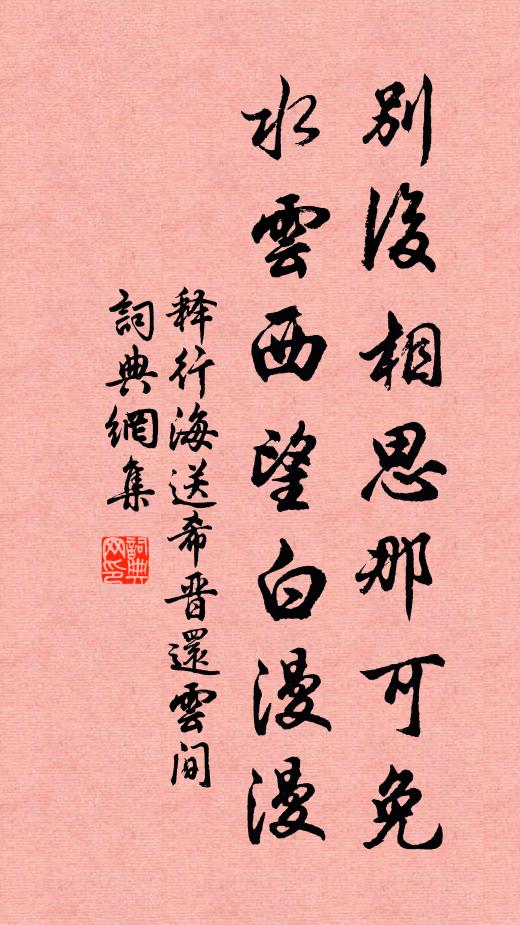 別後相思那可免
水雲西望白漫漫
释行海送希晋還雲间
詞典網集
詞典网印